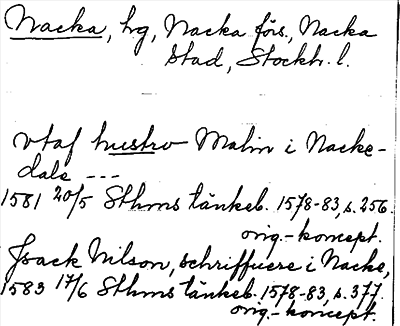 Nacka, hg, Nacka förs., Nacka
stad, Stockh. l.
vtaf hustro Malin i Nacke-
dals ---
1581 20/5 Sthms tänkeb. 1578-83, s. 256.
orig.-koncept.
Jsack Nilson, schriffuere i Nacke,
1583 17/6 Sthms tänkeb. 1578-83, s. 377.
orig.-koncept.